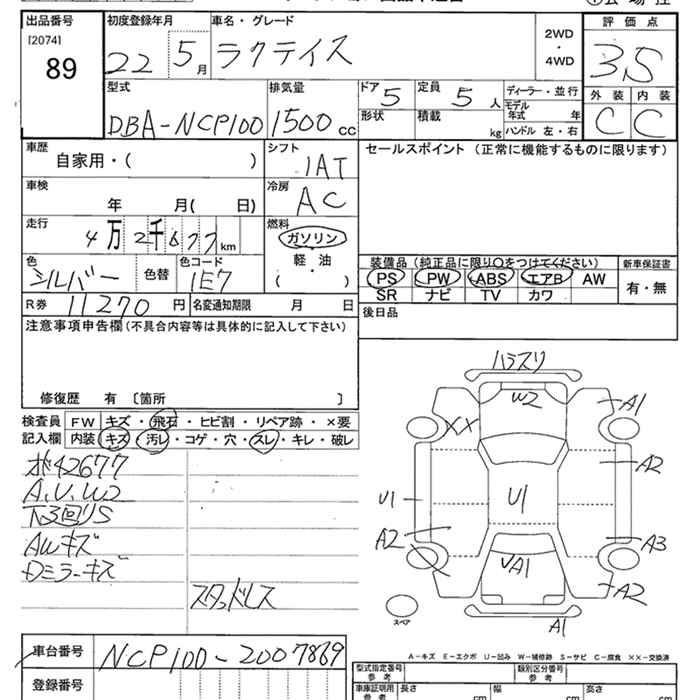 出品番号
[2074]
89
初度登録年月
22 5月
車名・グレード
ラクティス
2WD
・
4WD
評価点
3.5
外装 内装
C C
型式
DBA-NCP100
排気量
1500 cc
ドア 5
定員 5 人
形状
積載 kg
ディーラー・並行
モデル年式 年
ハンドル 左・右
車歴
自家用・( )
シフト
IAT
セールスポイント (正常に機能するものに限ります)
車検
年 月( 日)
冷房
AC
走行
4万2千677km
燃料
ガソリン
軽・油
( )
色
シルバー
色替
色コード
1E7
装備品 (純正品に限り○をつけてください)
新車保証書
PS PW ABS エアB AW
SR ナビ TV カワ
有・無
R券 11270 円
名変通知期限 月 日
後日品
注意事項申告欄 (不具合内容等は具体的に記入して下さい)
修復歴 有 〔箇所 〕
検査員記入欄
FW キズ・飛石・ヒビ割・リペア跡・×要
内装 キズ・汚レ・コゲ・穴・スレ・キレ・破レ
42677
A.U.W2
下3回リS
AWキズ
Dミラーキズ
スタッドレス
ハラスリ
W2
A1
XX
A2
U1
U1
A2
A3
A1
A2
A1
スペア
A-キズ E-エクボ U-凹み W-補修跡 S-サビ C-腐食 ××-交換済
車台番号
NCP100-2007869
登録番号
型式指定番号
参考
類別区分番号
参考
車庫証明用
参考
長さ cm
幅 cm
高さ cm